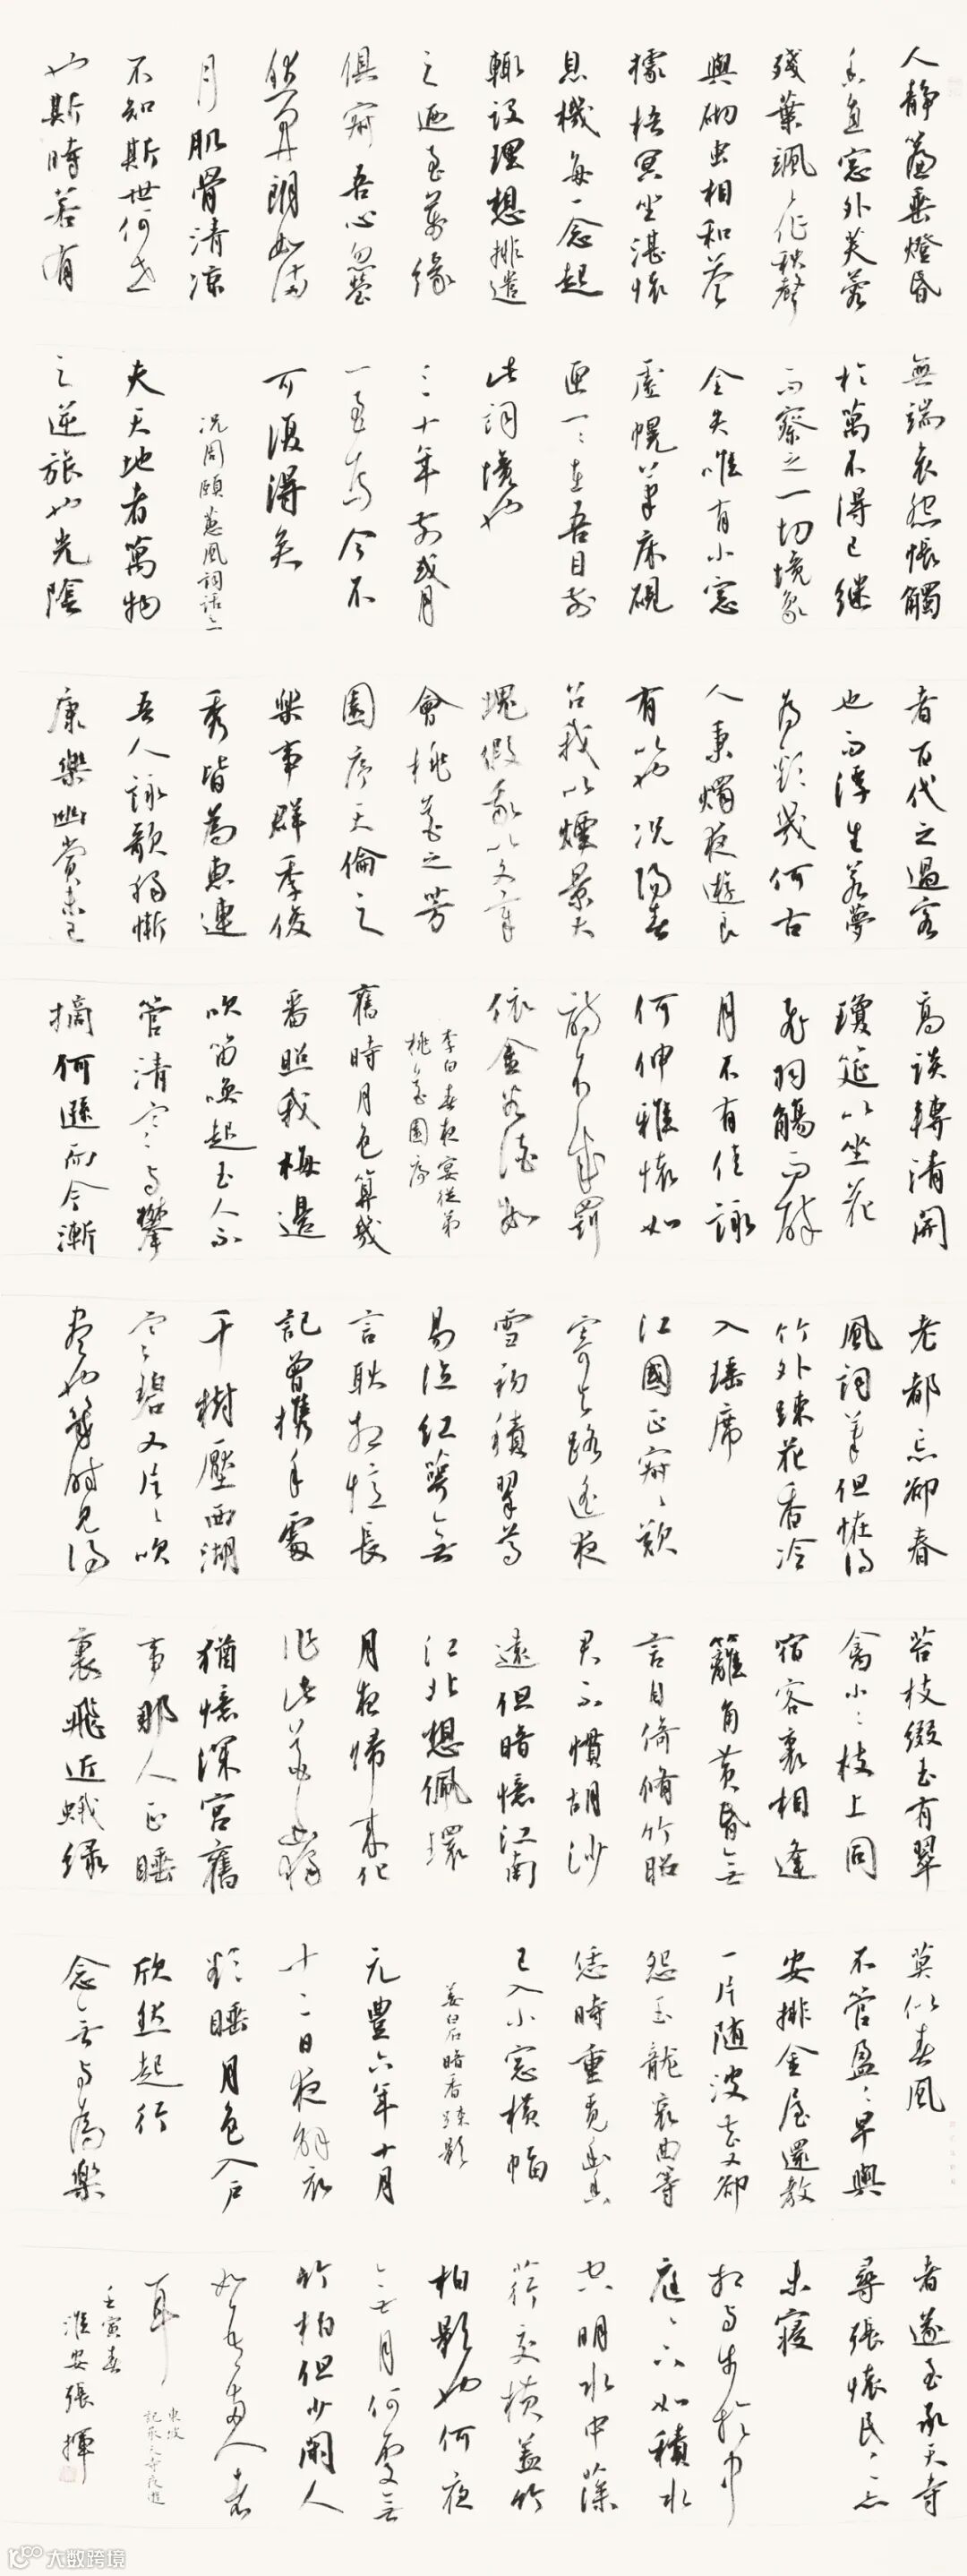 人静簾垂燈昏
香直窓外芙蓉
殘葉颯々作秋聲
與砌虫相和荅
據梧冥坐湛懷
息機每一念起
輒設理想排遣
之迺至萬緣
俱寂吾心忽瑩
然開朗如滿
月肌骨清凉
不知斯世何世
也斯時若有
無端哀怨悵觸
於萬不得已継
而察之一切境象
全失唯有小窓
虚幌筆床硯
匣一々在吾目前
此詞境也
三十年前或月
一至焉今不
可復得矣
况周頤蕙風詞話之一
夫天地者萬物
之逆旅也光陰
者百代之過客
也而浮生若夢
為歡幾何古
人秉燭夜遊良
有以也况陽春
召我以煙景大
塊假我以文章
會桃花之芳
園序天倫之
樂事群季俊
秀皆為惠連
吾人詠歌獨慚
康樂幽賞未已
高談轉清開
瓊筵以坐花
飛羽觴而醉
月不有佳詠
何伸雅懷如
詩不成罰
依金谷酒數
李白春夜宴從弟
桃花園序
舊時月色算幾
番照我梅邊
吹笛喚起玉人不
管清寒与攀
摘何遜而今漸
老都忘卻春
風詞筆但恠得
竹外疎花香冷
入瑶席
江國正寂々歎
寄与路遙夜
雪初積翠尊
易泣紅萼無
言耿相憶長
記曾攜手處
千樹壓西湖
寒碧又片々吹
盡也幾時見得
苔枝綴玉有翠
禽小々枝上同
宿客裏相逢
籬角黄昏無
言自倚脩竹昭
君不慣胡沙
遠但暗憶江南
江北想佩環
月夜歸來化
作此花幽獨
猶憶深宮舊
事那人正睡
裏飛近蛾緑
莫似春風
不管盈々早與
安排金屋還教
一片随波去又卻
怨玉龍哀曲等
恁時重覓幽香
已入小窓横幅
姜白石暗香疎影
元豐六年十月
十二日夜解衣
欲睡月色入戶
欣然起行
念無与為樂
者遂至承天寺
尋張懷民々亦
未寢
相与步於中
庭々下如積水
空明水中藻
荇交横蓋竹
柏影也何夜
無月何處無
竹柏但少閑人
如吾兩人者
耳
東坡
記承天寺夜遊
壬寅春
淮安張揮
大数跨境